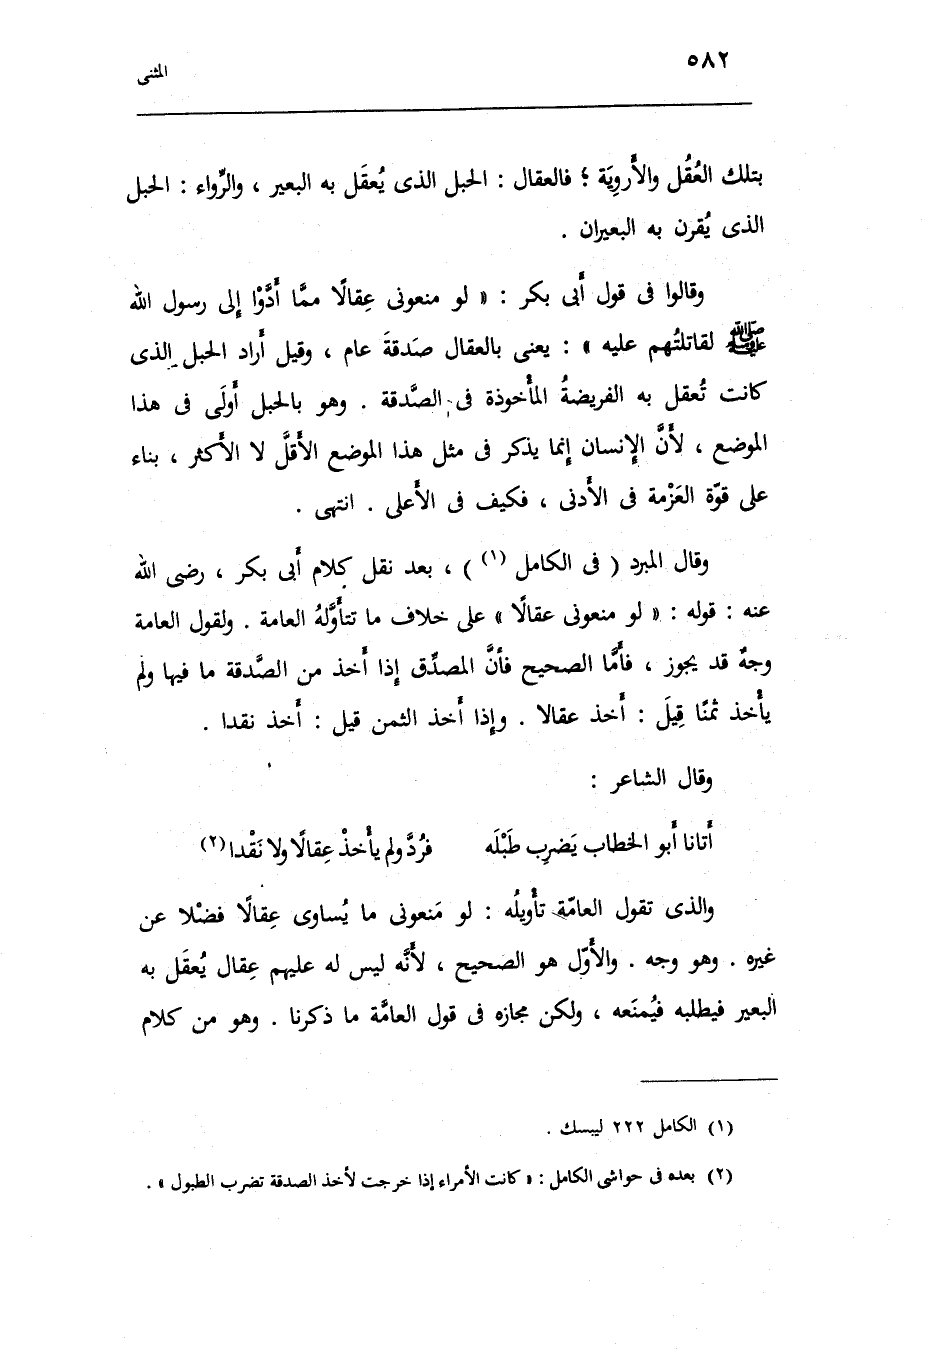 ٥٨٢
المثنى
بتلك العُقُل والأَروِيَة ؛ فالعقال : الحبل الذى يُعقَل به البعير ، والرِّواء : الحبل
الذى يُقرن به البعيران .
وقالوا فى قول أَبى بكر : « لو منعونى عِقالًا ممَّا أَدَّوْا إلى رسول الله
ﷺ لقاتلتُهم عليه » : يعنى بالعقال صَدقةَ عام ، وقيل أَراد الحبل الذى
كانت تُعقل به الفريضةُ المأْخوذة فى الصَّدقة . وهو بالحبل أَولَى فى هذا
الموضع ، لأَنَّ الإِنسان إنما يذكر فى مثل هذا الموضع الأَقلَّ لا الأَكثر ، بناء
على قوّة العَزْمة فى الأَدنى ، فكيف فى الأَعلى . انتهى .
وقال المبرد ( فى الكامل (١) ) ، بعد نقل كلام أَبى بكر ، رضى الله
عنه : قوله : « لو منعونى عقالًا » على خلاف ما تتأَوَّلهُ العامة . ولقول العامة
وجهٌ قد يجوز ، فأَمَّا الصحيح فأنَّ المصدِّق إذا أَخذ من الصَّدقة ما فيها ولم
يأْخذ ثمنًا قِيلَ : أَخذ عقالا . وإذا أَخذ الثمن قيل : أَخذ نقدا .
وقال الشاعر :
أَتانا أَبو الخطاب يَضرِب طَبْلَه فرُدَّ ولم يأْخذْ عِقالًا ولا نَقْدا (٢)
والذى تقول العامّة تأْويلُه : لو مَنعونى ما يُساوى عِقالًا فضْلا عن
غيره . وهو وجه . والأَوّل هو الصحيح ، لأَنَّه ليس له عليهم عِقال يُعقَل به
البعير فيطلبه فيُمنَعه ، ولكن مجازه فى قول العامَّة ما ذكرنا . وهو من كلام
(١) الكامل ٢٢٢ ليبسك .
(٢) بعده فى حواشى الكامل : « كانت الأمراء إذا خرجت لأخذ الصدقة تضرب الطبول » .